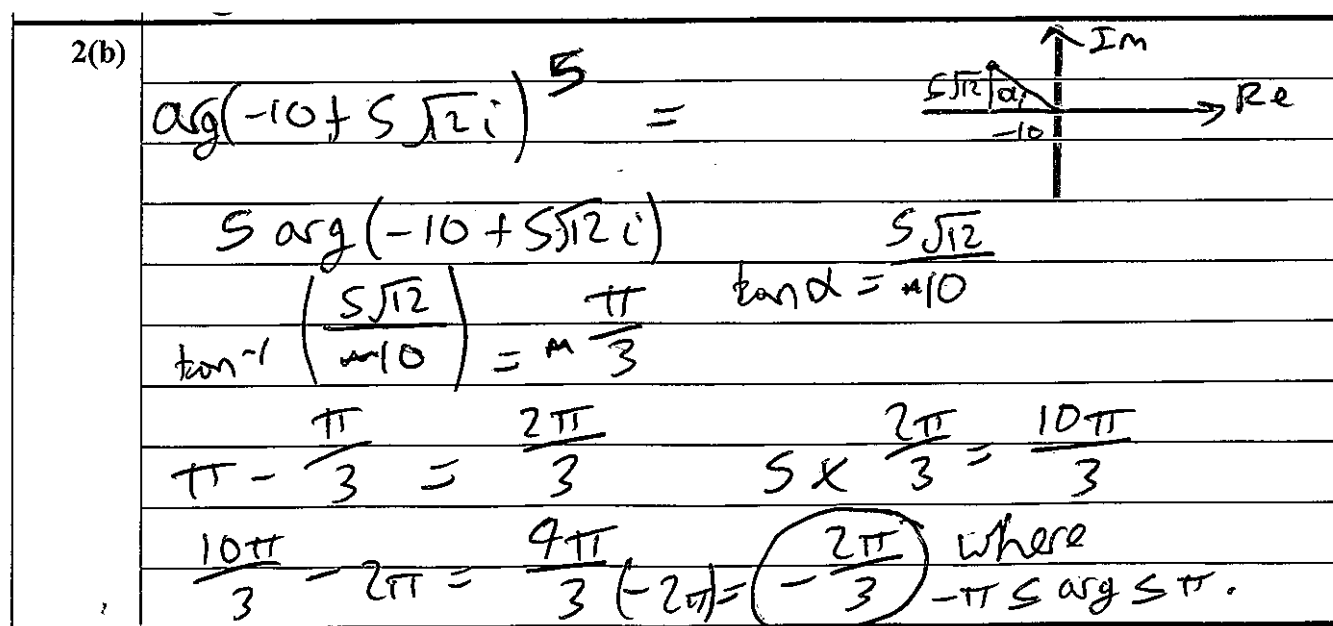 2(b)
Im
arg(-10 + 5√12 i)^5 =
5√12 α
-10
Re
5 arg(-10 + 5√12 i)
tan α = 5√12/10
tan⁻¹(5√12/10) = π/3
π - π/3 = 2π/3 5 × 2π/3 = 10π/3
10π/3 - 2π = 4π/3 (-2π) = -2π/3 where
-π ≤ arg ≤ π.